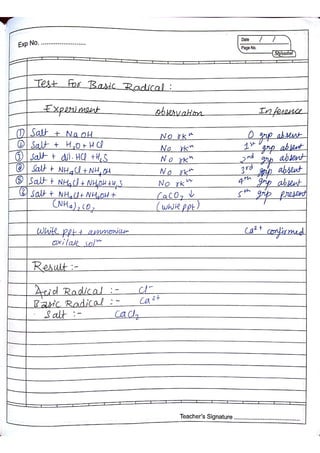 Date / /
Exp No. Page No.
Test For Basic Radical :
Experiment Observation Inference
① Salt + NaOH No rxⁿ 0 grp absent
② Salt + H₂O + HCl No rxⁿ 1st grp absent
③ Salt + dil. HCl + H₂S No rxⁿ 2nd grp absent
④ Salt + NH₄Cl + NH₄OH No rxⁿ 3rd grp absent
⑤ Salt + NH₄Cl + NH₄OH + H₂S No rxⁿ 4th grp absent
⑥ Salt + NH₄Cl + NH₄OH + CaCO₃ ↓ 5th grp present
(NH₄)₂CO₃ (White ppt)
White ppt + ammonium Ca²⁺ confirmed
oxilate solⁿ
Result :-
Acid Radical :- Cl⁻
Basic Radical :- Ca²⁺
Salt :- CaCl₂
Teacher's Signature